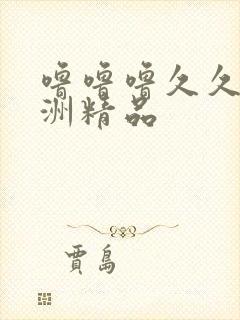 噜噜噜久久
洲精品
贾岛